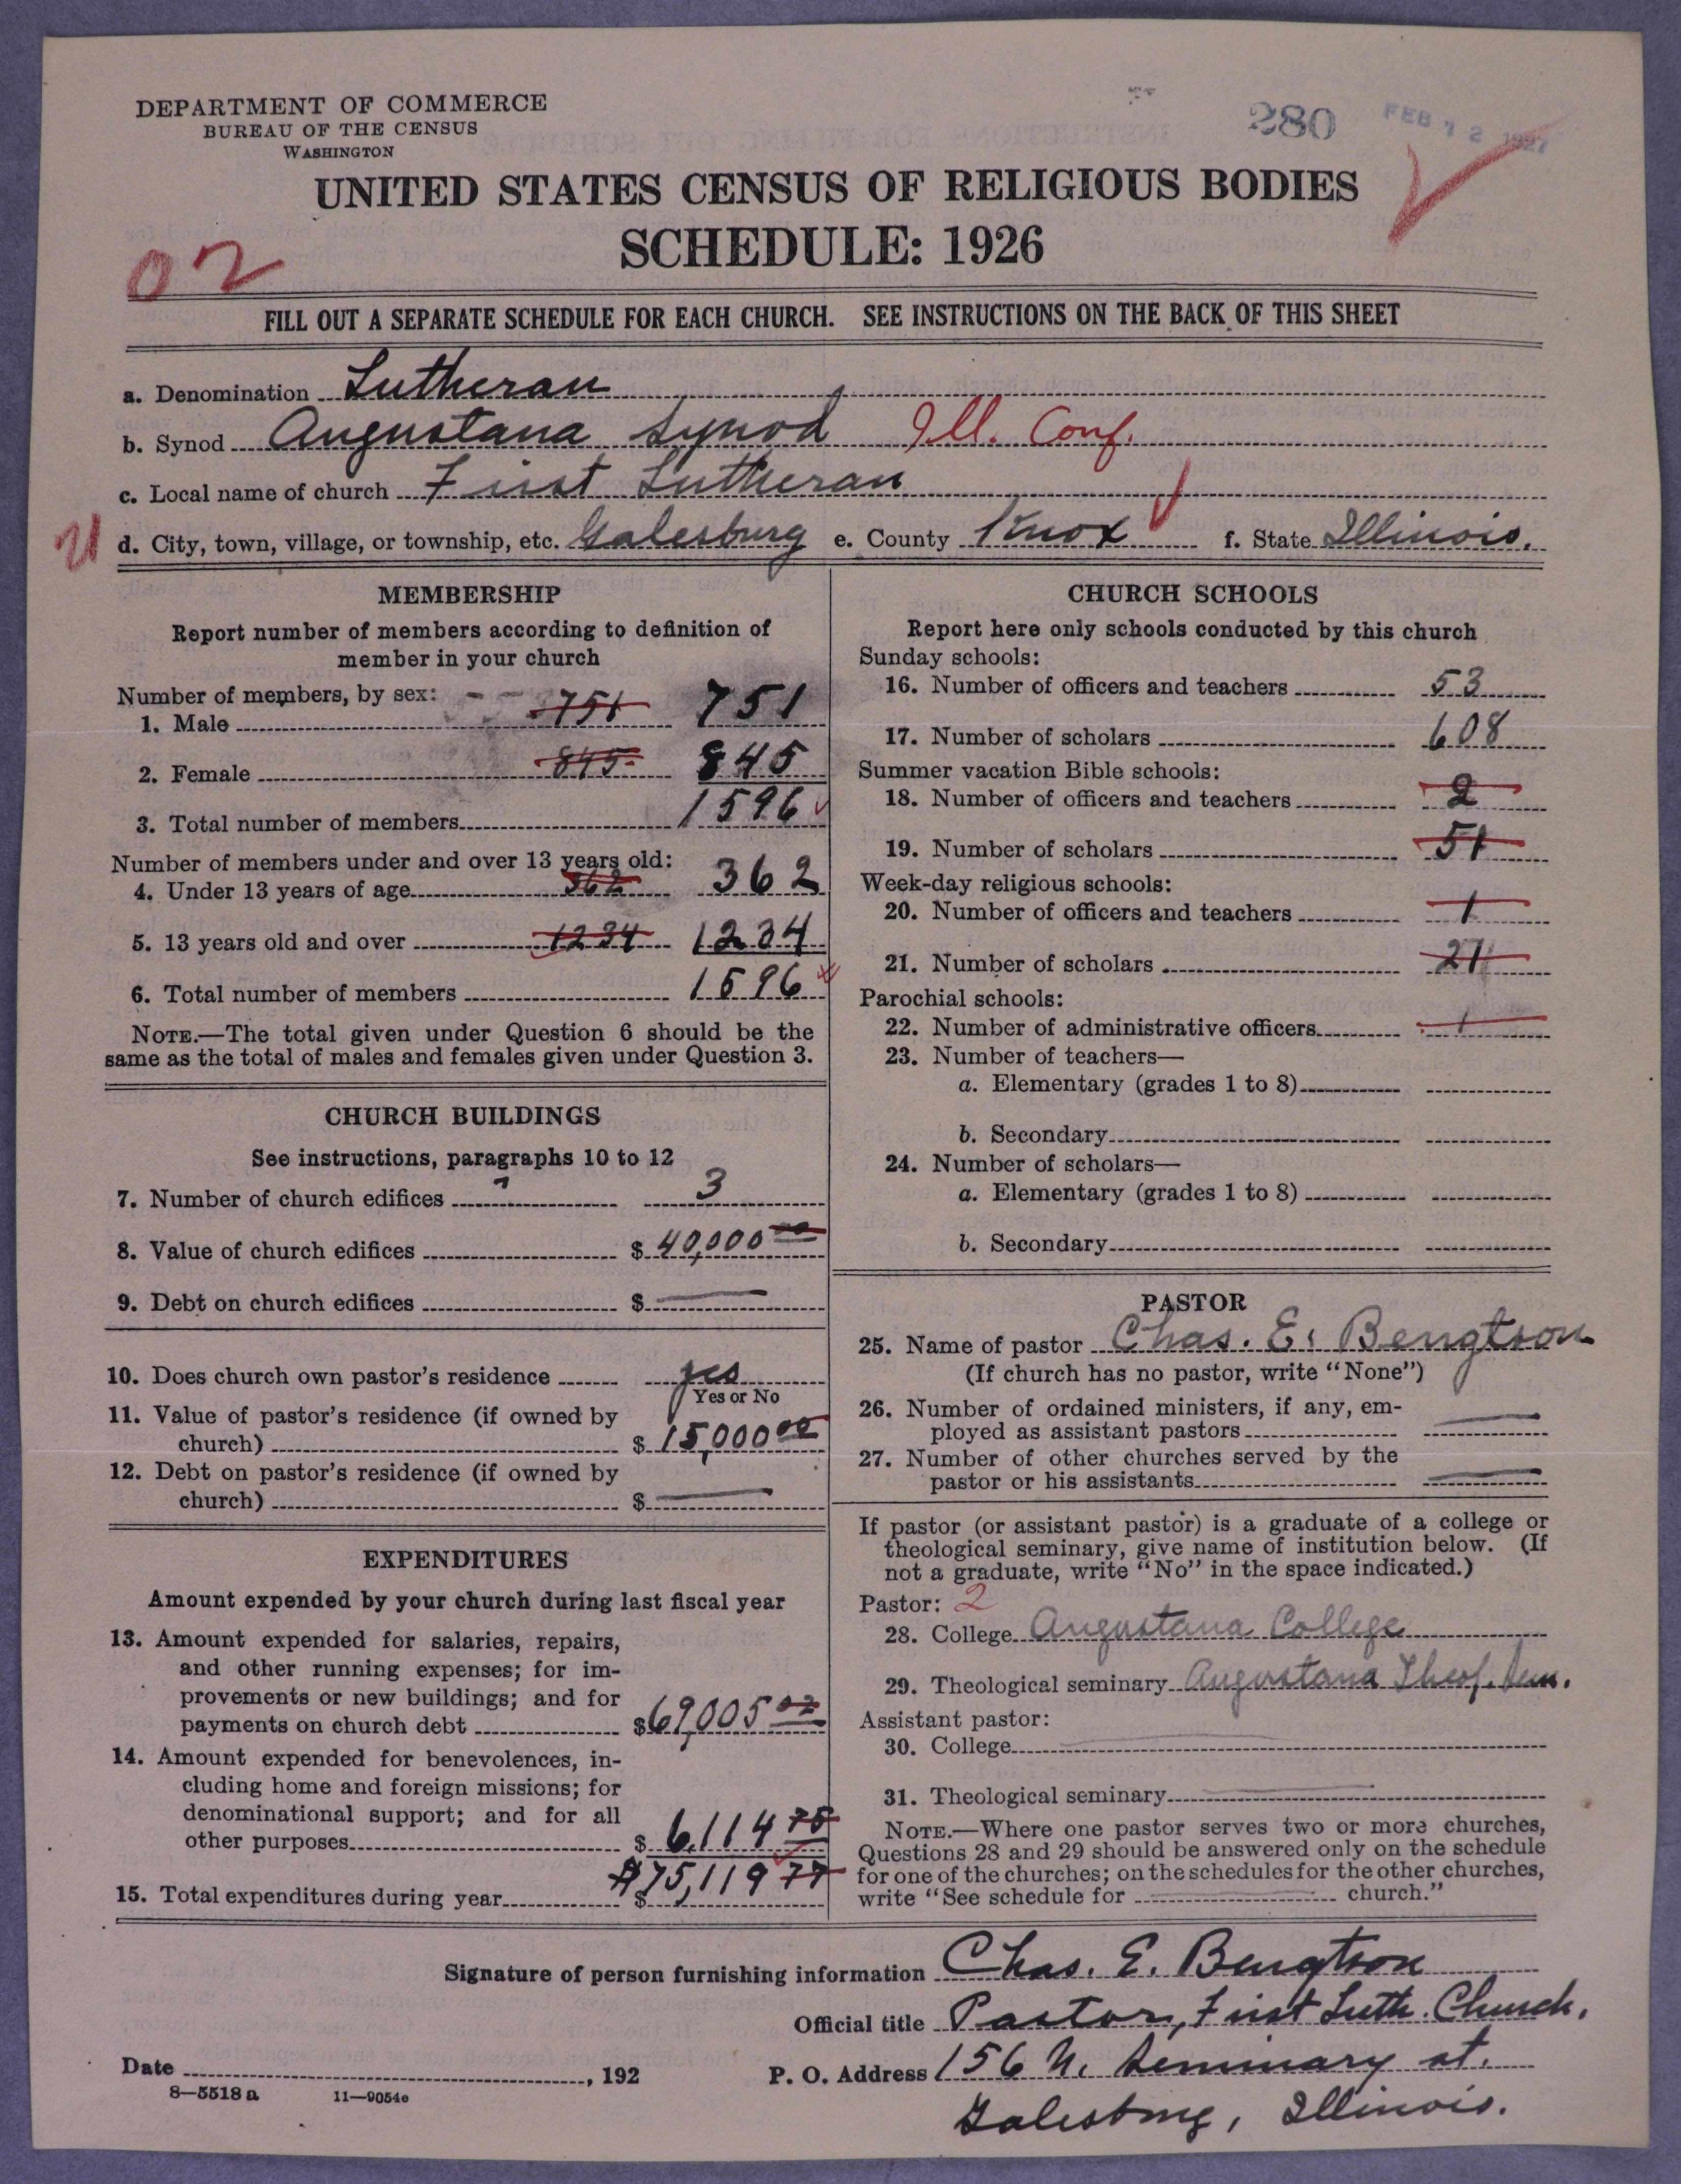 DEPARTMENT OF COMMERCE
BUREAU OF THE CENSUS
WASHINGTON
280
FEB 12 1927
UNITED STATES CENSUS OF RELIGIOUS BODIES
SCHEDULE: 1926
02
FILL OUT A SEPARATE SCHEDULE FOR EACH CHURCH. SEE INSTRUCTIONS ON THE BACK OF THIS SHEET
a. Denomination Lutheran
b. Synod Augustana Synod Ill. Conf.
c. Local name of church First Lutheran
21 d. City, town, village, or township, etc. Galesburg e. County Knox f. State Illinois.
MEMBERSHIP
Report number of members according to definition of
member in your church
Number of members, by sex:
1. Male 751 751
2. Female 845 845
3. Total number of members 1596
Number of members under and over 13 years old:
4. Under 13 years of age 362 362
5. 13 years old and over 1234 1234
6. Total number of members 1596
NOTE.—The total given under Question 6 should be the
same as the total of males and females given under Question 3.
CHURCH BUILDINGS
See instructions, paragraphs 10 to 12
7. Number of church edifices 3
8. Value of church edifices $ 40,000 00
9. Debt on church edifices $ —
10. Does church own pastor's residence yes
Yes or No
11. Value of pastor's residence (if owned by
church) $ 15,000 00
12. Debt on pastor's residence (if owned by
church) $ —
EXPENDITURES
Amount expended by your church during last fiscal year
13. Amount expended for salaries, repairs,
and other running expenses; for im-
provements or new buildings; and for
payments on church debt $69,005 02
14. Amount expended for benevolences, in-
cluding home and foreign missions; for
denominational support; and for all
other purposes $ 6,114 75
15. Total expenditures during year $ $75,119 77
CHURCH SCHOOLS
Report here only schools conducted by this church
Sunday schools:
16. Number of officers and teachers 53
17. Number of scholars 608
Summer vacation Bible schools:
18. Number of officers and teachers 2
19. Number of scholars 51
Week-day religious schools:
20. Number of officers and teachers 1
21. Number of scholars 21
Parochial schools:
22. Number of administrative officers 1
23. Number of teachers—
a. Elementary (grades 1 to 8)
b. Secondary
24. Number of scholars—
a. Elementary (grades 1 to 8)
b. Secondary
PASTOR
25. Name of pastor Chas. E. Bengtson
(If church has no pastor, write "None")
26. Number of ordained ministers, if any, em-
ployed as assistant pastors —
27. Number of other churches served by the
pastor or his assistants —
If pastor (or assistant pastor) is a graduate of a college or
theological seminary, give name of institution below. (If
not a graduate, write "No" in the space indicated.)
Pastor: 2
28. College Augustana College
29. Theological seminary Augustana Theol. Sem.
Assistant pastor:
30. College —
31. Theological seminary —
NOTE.—Where one pastor serves two or more churches,
Questions 28 and 29 should be answered only on the schedule
for one of the churches; on the schedules for the other churches,
write "See schedule for — church."
Signature of person furnishing information Chas. E. Bengtson
Official title Pastor, First Luth. Church.
Date , 192
P. O. Address 156 N. Seminary st.
Galesburg, Illinois.
8—5518 a 11—9054e